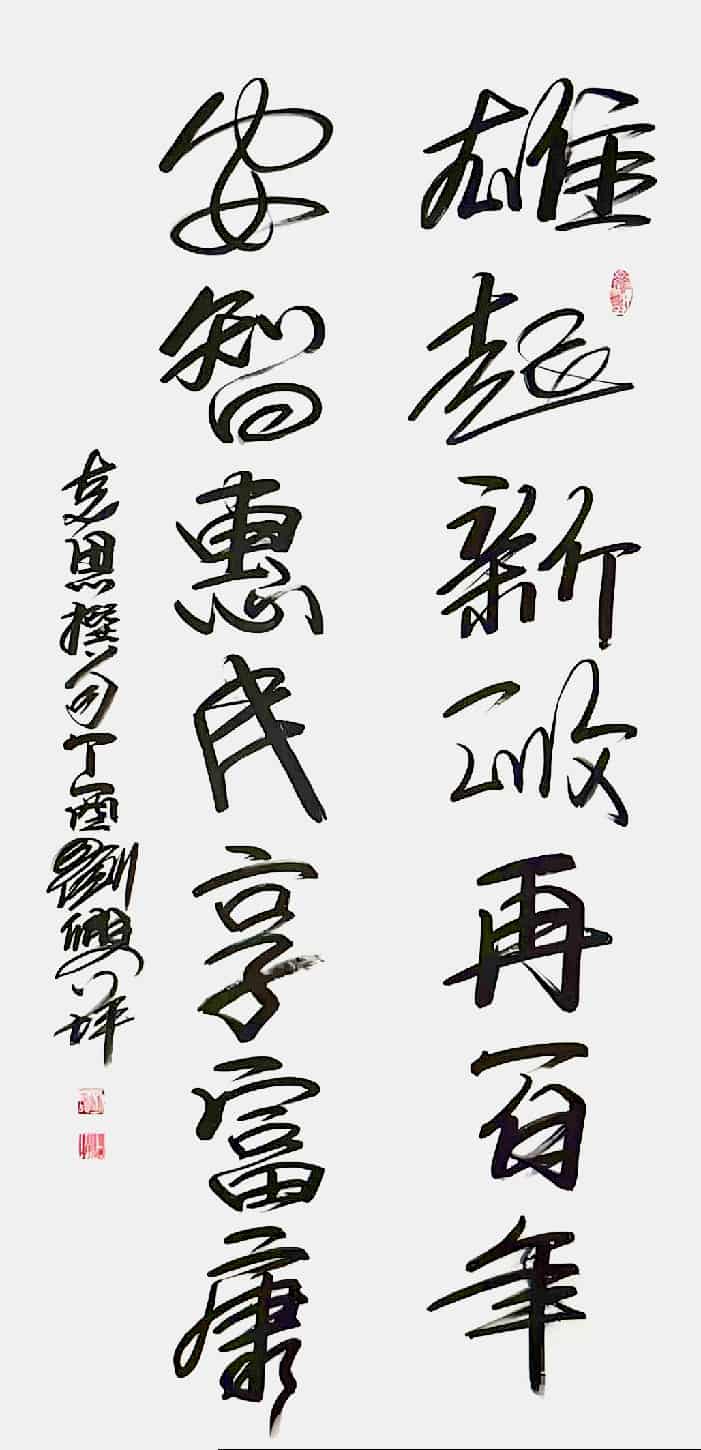 雄起新政再百年
安智惠民享富康
克思撰句丁酉劉興祥